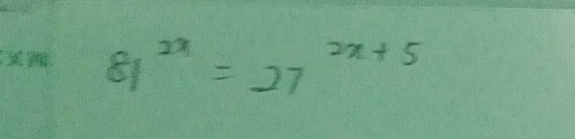 81^{2x} = 27^{2x+5}